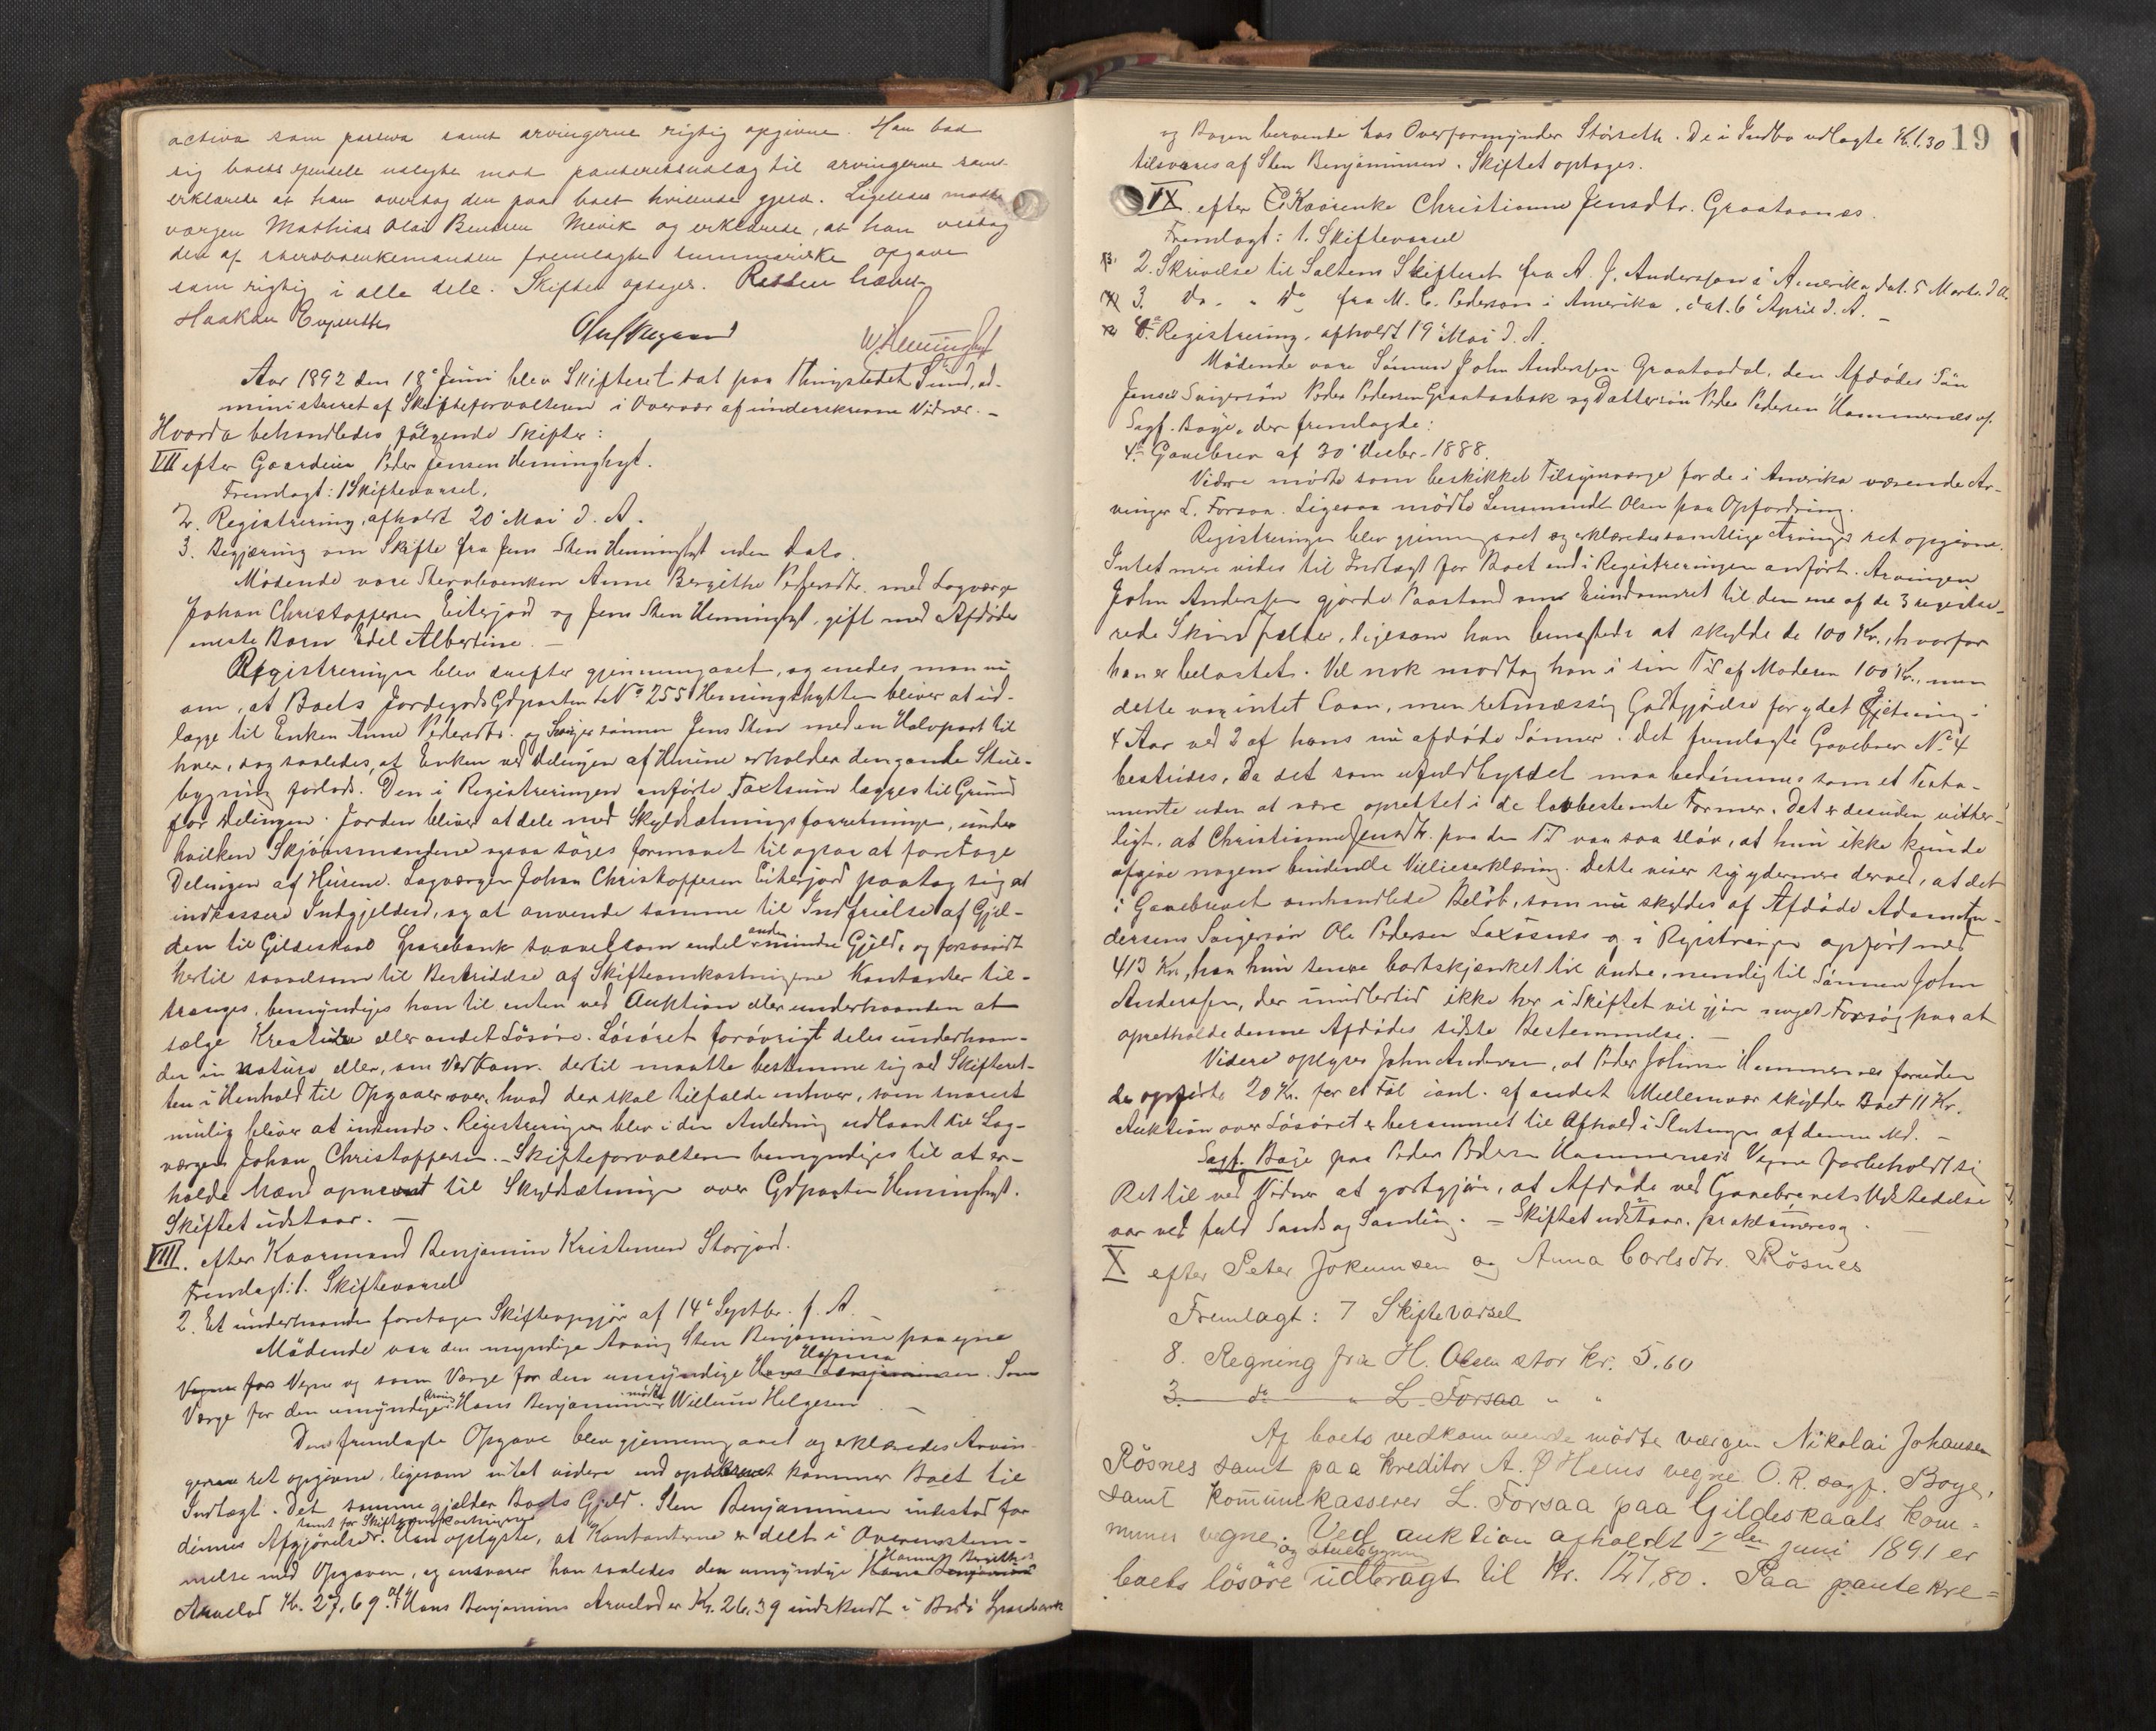 activa som passiva samt arvingerne rigtig opgivne. Han bad
sig boets eiendele udlagte mod panteretsudlæg til arvingerne samt
erklærede at han overtog den paa boet hvilende gjeld. Ligeledes mødte
værgen Mathias Olai Bentsen Mevik og erklærede, at han vedtog
den af sterbboenkemanden fremlagte summariske opgave
som rigtig i alle dele. Skiftet optages. Retten hævet.
Haakon Evjenthu
Aar 1892 den 18de Juni blev Skifteret sat paa Thingstedet Sund, ad-
ministreret af Skifteforvalteren i Overvær af underskrevne Vidner. -
Hvorda behandledes følgende Skifter:
VII efter Gaardmd Peder Jensen Henninghyt.
Fremlagt: 1 Skiftevarsel.
2. Registrering, afholdt 20de Mai d. A.
3. Begjæring om Skifte fra Jens Sten Henninghyt uden dato.
Mødende vare Sterbboenken Anne Bergithe Pedersdtr. med Lagværge
Johan Christoffersen Eiterjord og Jens Sten Henninghyt, gift med Afdødes
eneste Barn Edel Albertine. -
Registreringen blev derefter gjennemgaaet, og enedes man nu
om, at Boets Jordegods Gdparten LNo 255 Henningshytten bliver at ud-
lægge til Enken Anne Pedersdtr. og Svigersønnen Jens Sten med en Halvpart til
hver, dog saaledes, at Enken ved Delingen af Husene erholder den gamle Stue-
bygning forlods. Den i Registreringen anførte Taxtsum lægges til Grund
for Delingen. Jorden bliver at dele ved Skyldsætningsforretning, under
hvilken Skjønsmændene ogsaa søges formaaet til ogsaa at foretage
Delingen af Husene. Lagværgen Johan Christoffersen Eiterjord paatog sig at
indkassere Indgjelden, og at anvende samme til Indfrielse af Gjel-
den til Gildeskaal Sparebank saavelsom endel anden mindre Gjeld, og forsaavidt
hertil saavelsom til Bestridelse af Skifteomkostningerne Kontanter til-
trænges, bemyndiges han til enten ved Auktion eller underhaanden at
sælge Kreature eller andet Løsøre. Løsøret forøvrigt deles underhaan-
den in natura eller, om Vedkom. dertil maatte bestemme sig ved Skifteret-
ten i Henhold til Opgaver over, hvad der skal tilfalde enhver, som snarest
mulig bliver at indsende. Registreringen blev i den Anledning udlaant til Lag-
værgen Johan Christoffersen. - Skifteforvalteren bemyndiges til at er-
holde Mænd opnævnt til Skyldsætning over Gdparten Henninghyt.
Skiftet udstaar. -
VIII. efter Kaarmand Benjamin Kristensen Storjord.
Fremlagt: 1. Skiftevarsel
2. Et underhaanden foretagen Skifteopgjør af 14de Septbr. f. A.
Mødende var den myndige Arving Sten Benjaminsen paa egne
Vegne for Vegne og som Værge for den umyndige Hans Benjaminsen Hanna. Som
Værge for den umyndige Arving Hans Benjaminsen mødte Willum Helgesen -
Den fremlagte Opgave blev gjennemgaaet og erklæredes Arvin-
gerne ret opgivne, ligesom intet videre end opskrevet kommer Boet til
Indtægt. Det samme gjælder Boets Gjeld. Sten Benjaminsen indestod for
dennes Afgjørelse samt for Skifteomkostningerne. Han oplyste, at Kontanterne er delt i Overensstem-
melse med Opgaven, og ansvarer han saaledes den umyndige Hans Benjamins Hanna Berithes
Arvelod Kr. 27,69. af Hans Benjamins Arvelod er Kr. 26,39 indskudt i Bodø Sparebank
19
og Bogen beroende hos Overformynder Størseth. De i Indbo udlagte Kr. 1,30
tilsvares af Sten Benjaminsen. Skiftet optages.
IX. efter Kaarenke Christianna Jensdtr. Graataanæs.
Fremlagt: 1. Skiftevarsel
2. Skrivelse til Saltens Skifteret fra A. J. Anderssen i Amerika, dat. 5 Marts d. A.
3. Do. " Do fra M. C. Pederson i Amerika, dat. 6te April d. A. -
4. Registrering, afholdt 19de Mai d. A.
Mødende vare Sønnen John Anderssen Graataadal, den Afdødes Søn
Jenses Svigersøn Peder Pedersen Graataabak og Dattersøn Peder Pedersen Hammernes v/
Sagf. Bøye, der fremlagte:
4. Gavebrev af 30te Decbr. 1888.
Videre mødte som beskikket Tilsynsværge for de i Amerika værende Ar-
vinger L. Forsaa. Ligesaa mødte Lensmand Olsen paa Opfordring.
Registreringen blev gjennemgaaet og erklæredes samtlige Arvinger ret opgivne.
Intet mere vides til Indtægt for Boet end i Registreringen anført. Arvingen
John Anderssen gjorde Paastand om Eiendomsret til den ene af de 3 registre-
rede Skindfelder, ligesom han benegtede at skylde de 100 Kr., hvorfor
han er belastet. Vel nok modtog han i sin Tid af Moderen 100 Kr., men
dette var intet Laan, men retmæssig Godtgjørelse for ydet Gjetning i
4 Aar ved 2 af hans nu afdøde Sønner. Det fremlagte Gavebrev No 4
bestrides, da det som ufuldbyrdet maa bedømmes som et Testa-
mente uden at være oprettet i de lovbestemte Former. Det er desuden vitter-
ligt, at Christianna Jensdtr. paa den Tid var saa sløv, at hun ikke kunde
afgive nogen bindende Villieserklæring. Dette viser sig ydermere derved, at det
i Gavebrevet omhandlede Beløb, som nu skyldes af Afdøde Adam An-
dersens Svigersøn Ole Pedersen Laxøsnæs og i Registreringen opført med
413 Kr., har hun senere bortskjænket til andre, nemlig til Sønnen John
Anderssen, der imidlertid ikke her i Skiftet vil gjøre noget Forsøg paa at
opretholde denne Afdødes sidste Bestemmelse. -
Videre oplyser John Andersen, at Peder Johnsen Hammernes foruden
de opførte 20 Kr. for et Føl ianl. af andet Mellemvær skylder Boet 11 Kr.
Auktion over Løsøret er berammet til Afhold i Slutningen af denne Md. -
Sagf. Bøye paa Peder Pedersen Hammernes's Vegne forbeholdt sig
Ret til ved Vidner at godtgjøre, at Afdøde ved Gavebrevets Udstedelse
var ved fuld Sands og Samling. - Skiftet udstaar.
X efter Peter Jokumsen og Anna Carlsdtr. Røsnes
Fremlagt: 7 Skiftevarsel
8. Regning fra H. Olsen stor kr. 5.60
3. do " L. Forsaa " "
Af boets vedkommende mødte værgen Nikolai Johansen
Røsnes samt paa kreditor A. Ø Hems vegne O. R. sagf. Boye,
samt kommunekasserer L. Forsaa paa Gildeskaals kom-
munes vegne. Ved auktion afholdt 2den juni 1891 er
boets løsøre og stuebygning udbragt til kr. 127,80. Paa pantekre=